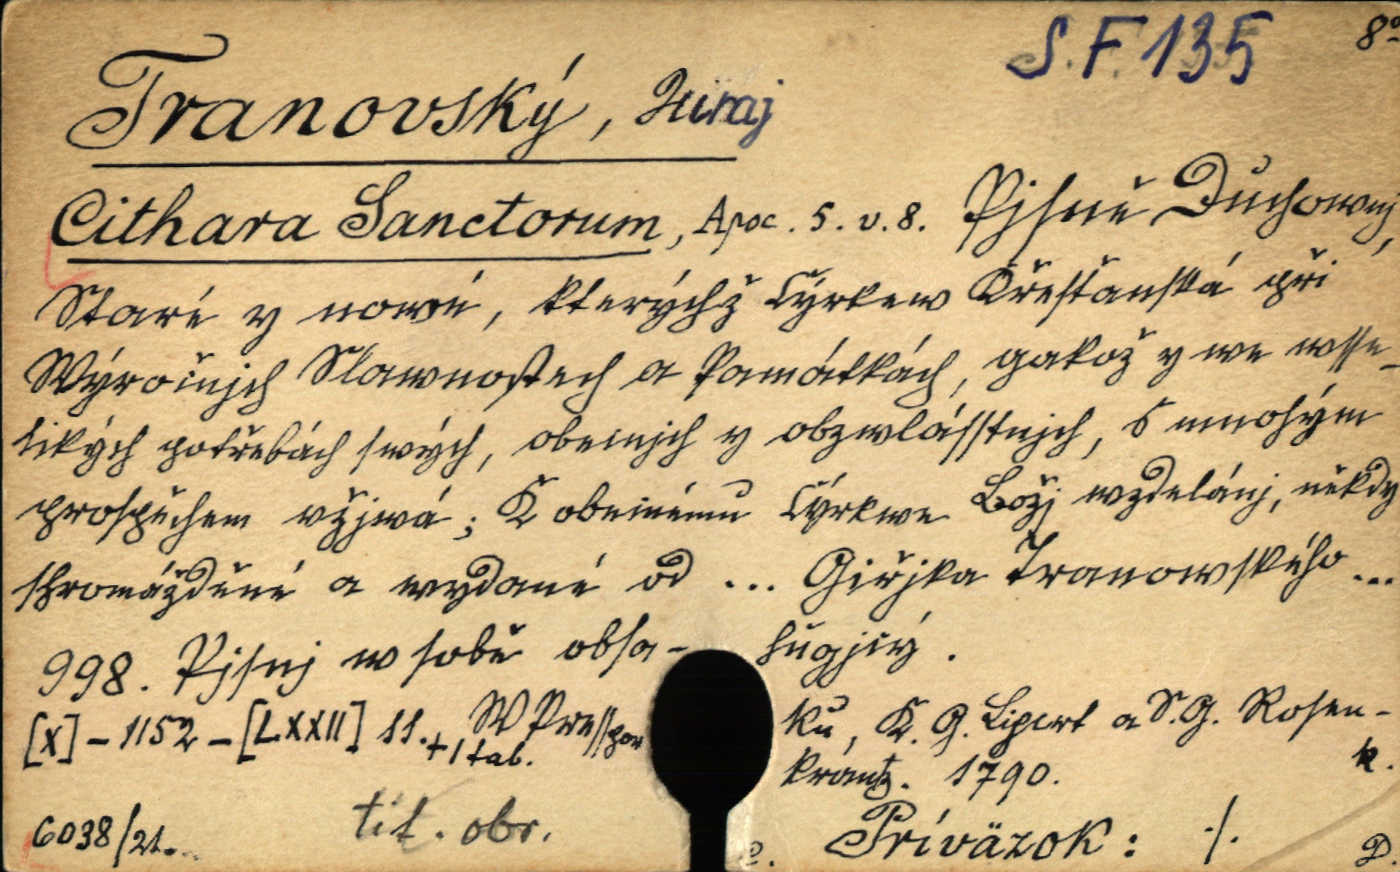 S.F. 135 8°
Tranovský, Juraj
Cithara Sanctorum, Apoc. 5. v. 8. Pjsně Duchownj,
Staré y nowé, kterýchž Cýrkew Křesťanská při
Weyročnjch Slawnostech a Památkách, gakož y we wsse-
likých potřebách swých, obecnjch y obzwlásstnjch, s mnohým
prospěchem vžjwá; K obecnému Cýrkwe Božj wzdelánj, někdy
shromážděné a wydané od ... Giřjka Tranowského ...
998. Pjsnj w sobě obsa- hugjcý.
[X] - 1152 - [LXXII] ll. + 1 tab. W Presspor ku, K. G. Lipert a S. G. Rosen-
krantz. 1790. k.
6038/21. tit. obr. Príväzok: ./. D.